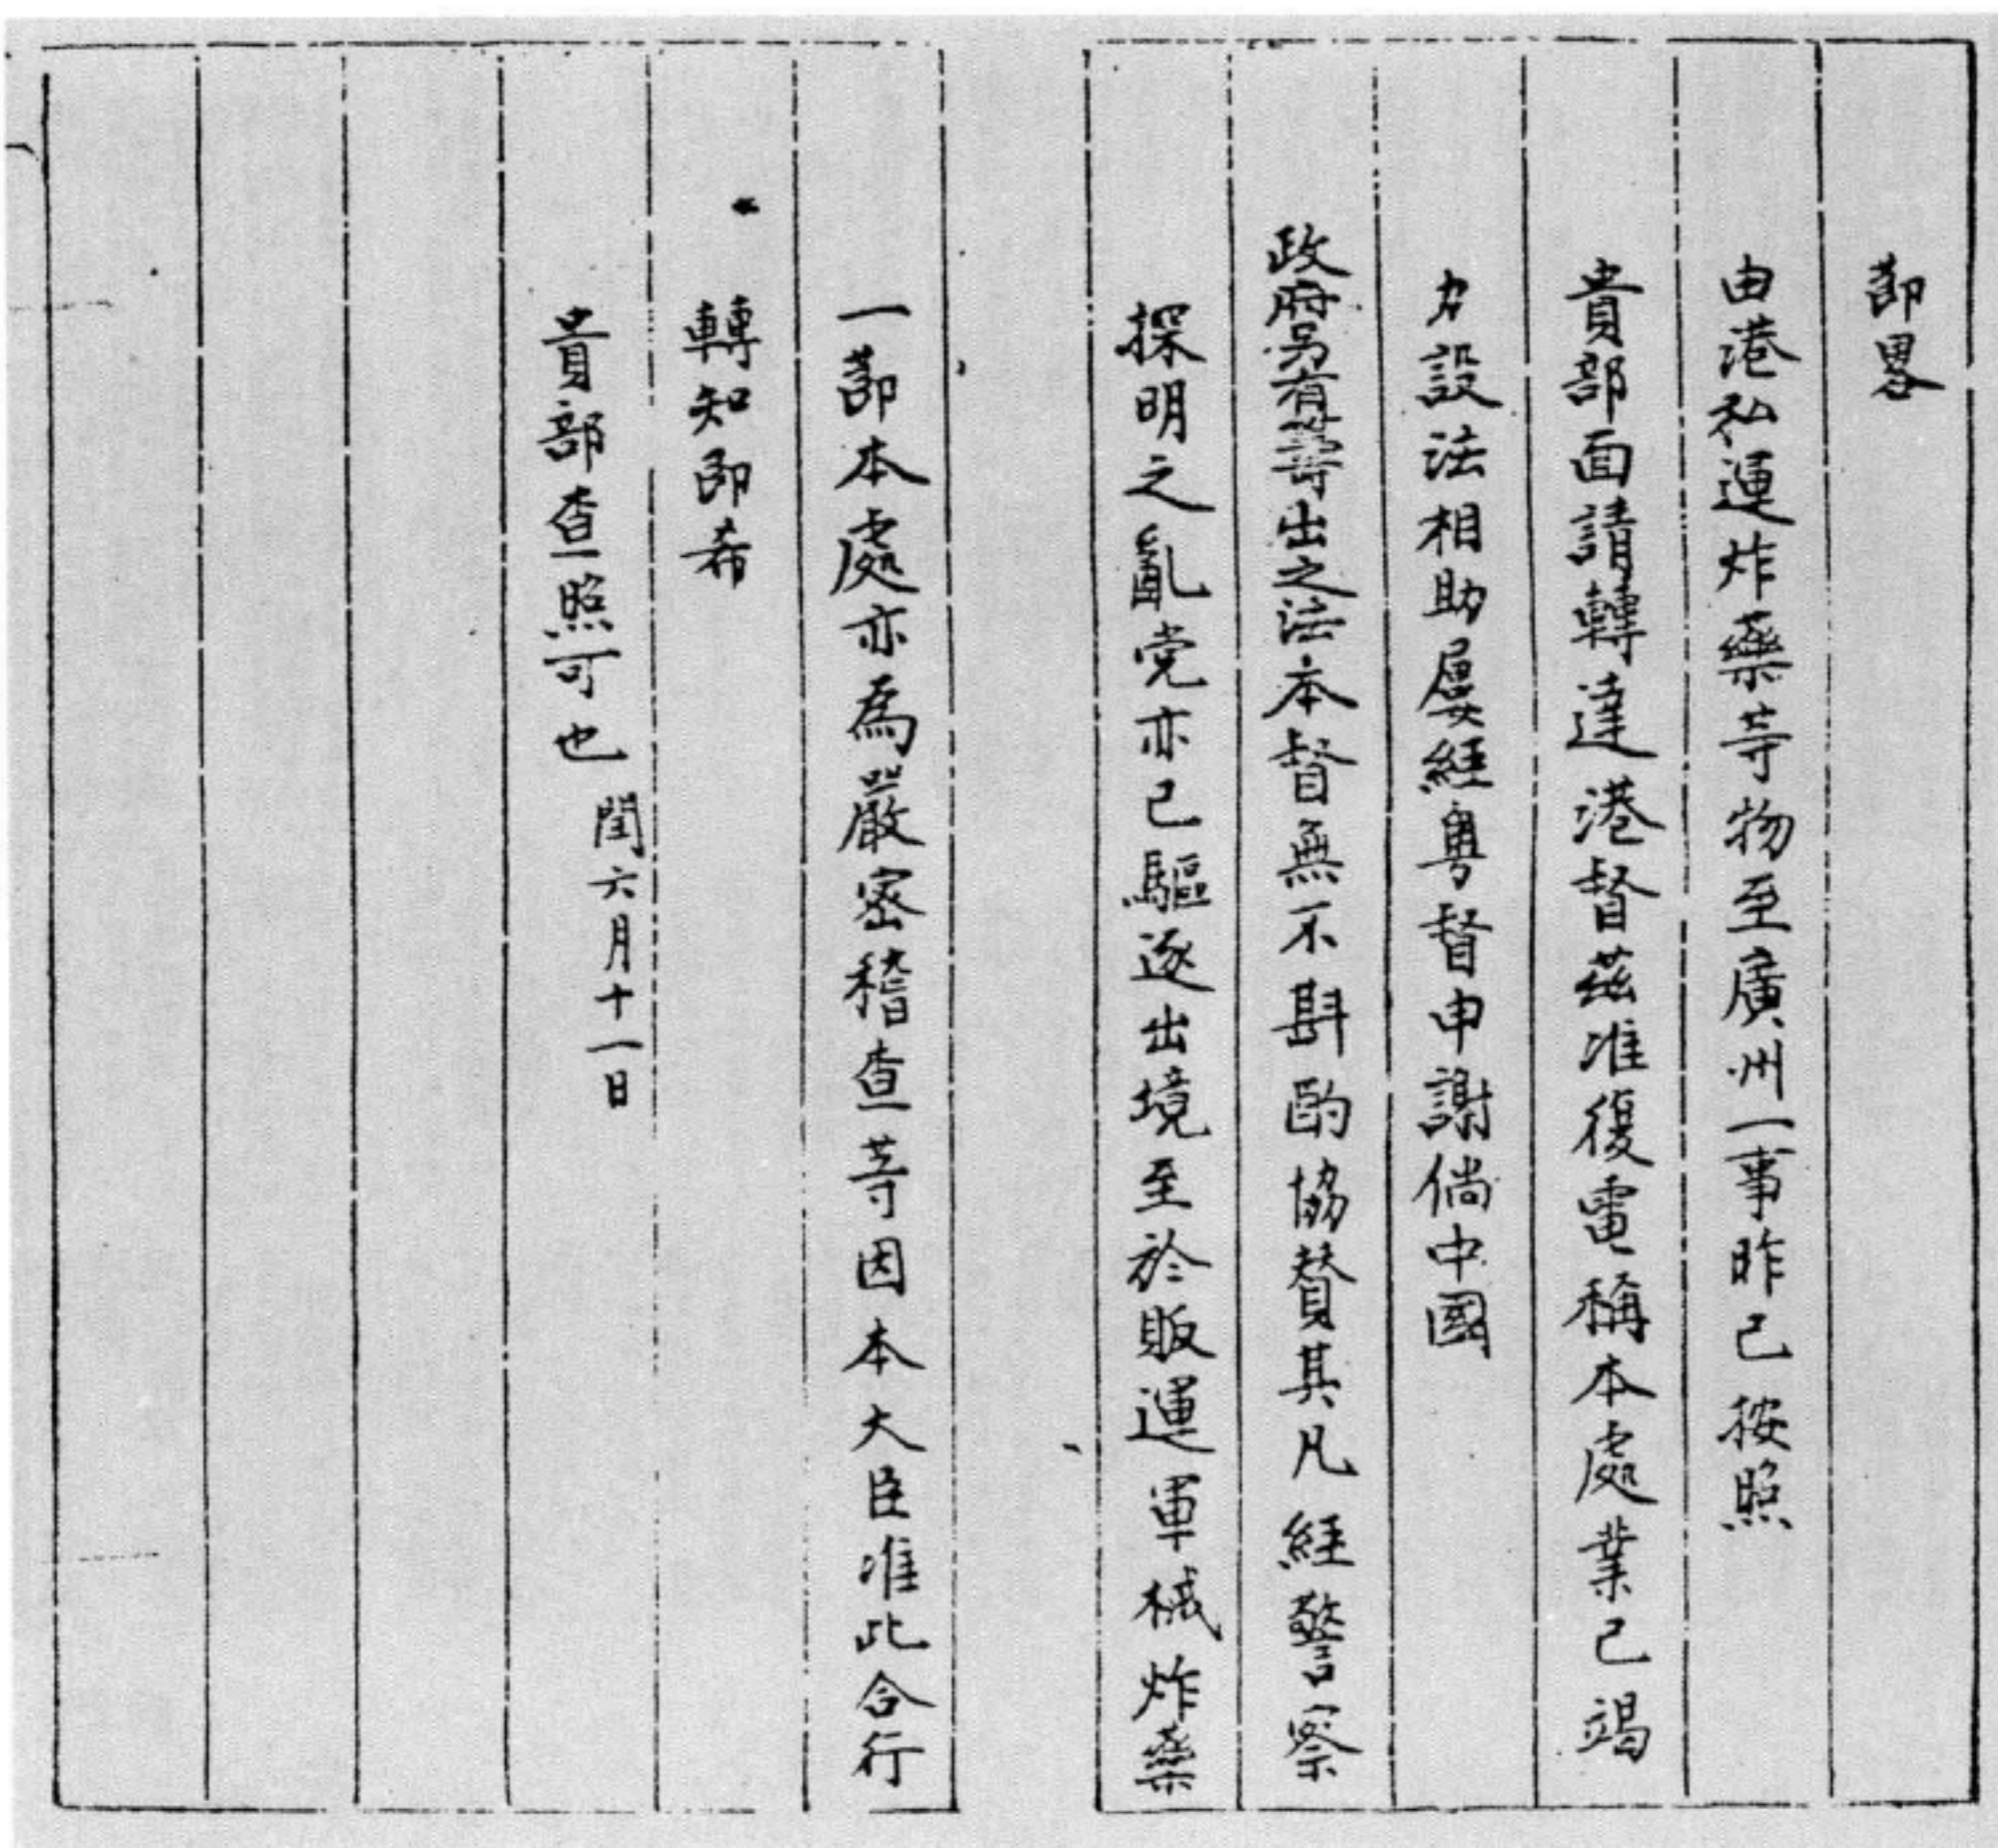 節畧
由港私運炸藥等物至廣州一事昨已按照
貴部面請轉達港督茲准復電稱本處業已竭
力設法相助屢經粵督申謝倘中國
政府另有籌出之法本督無不斟酌協贊其凡經警察
探明之亂党亦已驅逐出境至於販運軍械炸藥
一節本處亦為嚴密稽查等因本大臣准此合行
轉知即希
貴部查照可也
閏六月十一日